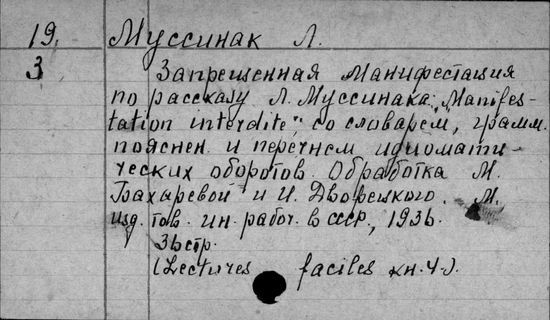 19. Муссинак Л.
3 Запрещенная Манифестация
по рассказу Л. Муссинака „Manifes-
tation interdite", со словарем, грамм.
пояснен. и перечнем идиомати-
ческих оборотов. Обработка М.
Бахаревой и И. Дворецкого. М.
изд. тов. ин. рабоч. в СССР, 1936.
36 стр.
(Lectures faciles кн. 4.)